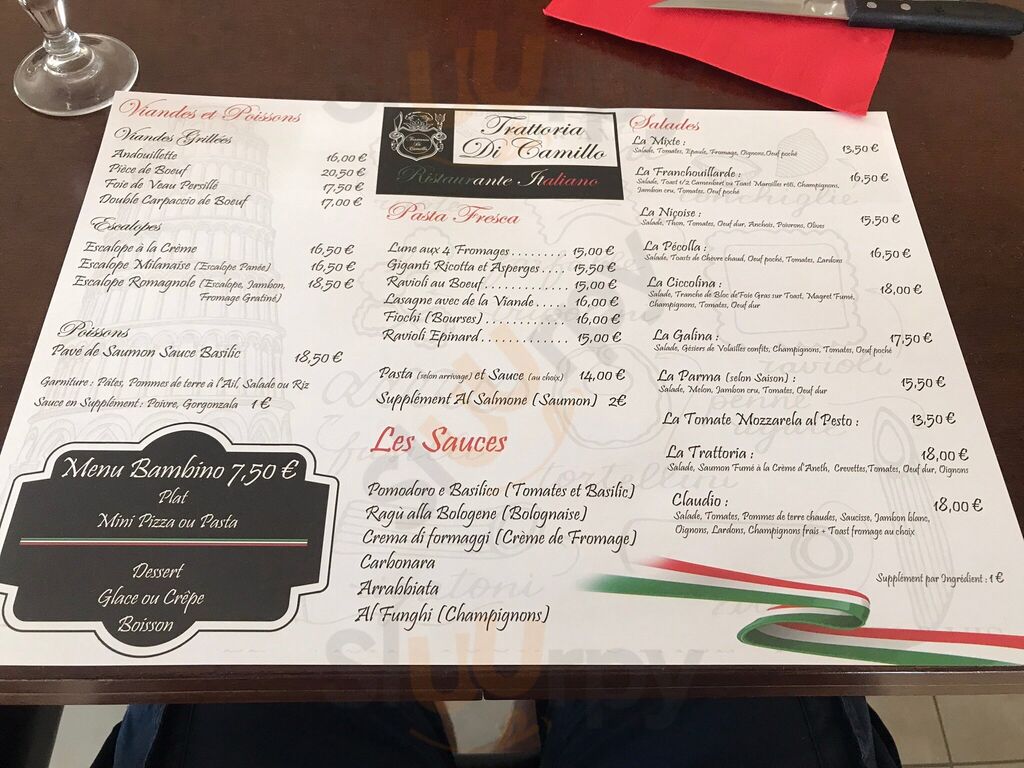 Viandes et Poissons
Viandes Grillées
Andouillette 16,00 €
Pièce de Boeuf 20,50 €
Foie de Veau Persillé 17,50 €
Double Carpaccio de Boeuf 17,00 €
Escalopes
Escalope à la Crème 16,50 €
Escalope Milanaise (Escalope Panée) 16,50 €
Escalope Romagnole (Escalope, Jambon, 18,50 €
Fromage Gratiné)
Poissons
Pavé de Saumon Sauce Basilic 18,50 €
Garniture : Pâtes, Pommes de terre à l'Ail, Salade ou Riz
Sauce en Supplément : Poivre, Gorgonzala 1 €
Menu Bambino 7,50 €
Plat
Mini Pizza ou Pasta
Dessert
Glace ou Crêpe
Boisson
Trattoria
Di Camillo
Ristaurante Italiano
Pasta Fresca
Lune aux 4 Fromages........ 15,00 €
Giganti Ricotta et Asperges..... 15,50 €
Ravioli au Boeuf............. 15,00 €
Lasagne avec de la Viande..... 16,00 €
Fiochi (Bourses)............. 16,00 €
Ravioli Epinard............. 15,00 €
Pasta (selon arrivage) et Sauce (au choix) 14,00 €
Supplément Al Salmone (Saumon) 2€
Les Sauces
Pomodoro e Basilico (Tomates et Basilic)
Ragù alla Bologene (Bolognaise)
Crema di formaggi (Crème de Fromage)
Carbonara
Arrabbiata
Al Funghi (Champignons)
Salades
La Mixte : 13,50 €
Salade, Tomates, Epaule, Fromage, Oignons, Oeuf poché
La Franchouillarde : 16,50 €
Salade, Toast 1/2 Camembert ou Toast Maroilles rôti, Champignons,
Jambon cru, Tomates, Oeuf poché
La Niçoise : 15,50 €
Salade, Thon, Tomates, Oeuf dur, Anchois, Poivrons, Olives
La Pécolla : 16,50 €
Salade, Toasts de Chèvre chaud, Oeuf poché, Tomates, Lardons
La Ciccolina : 18,00 €
Salade, Tranche de Bloc de Foie Gras sur Toast, Magret Fumé,
Champignons, Tomates, Oeuf dur
La Galina : 17,50 €
Salade, Gésiers de Volailles confits, Champignons, Tomates, Oeuf poché
La Parma (selon Saison) : 15,50 €
Salade, Melon, Jambon cru, Tomates, Oeuf dur
La Tomate Mozzarela al Pesto : 13,50 €
La Trattoria : 18,00 €
Salade, Saumon Fumé à la Crème d'Aneth, Crevettes, Tomates, Oeuf dur, Oignons
Claudio : 18,00 €
Salade, Tomates, Pommes de terre chaudes, Saucisse, Jambon blanc,
Oignons, Lardons, Champignons frais + Toast fromage au choix
Supplément par Ingrédient : 1 €
sluurpy